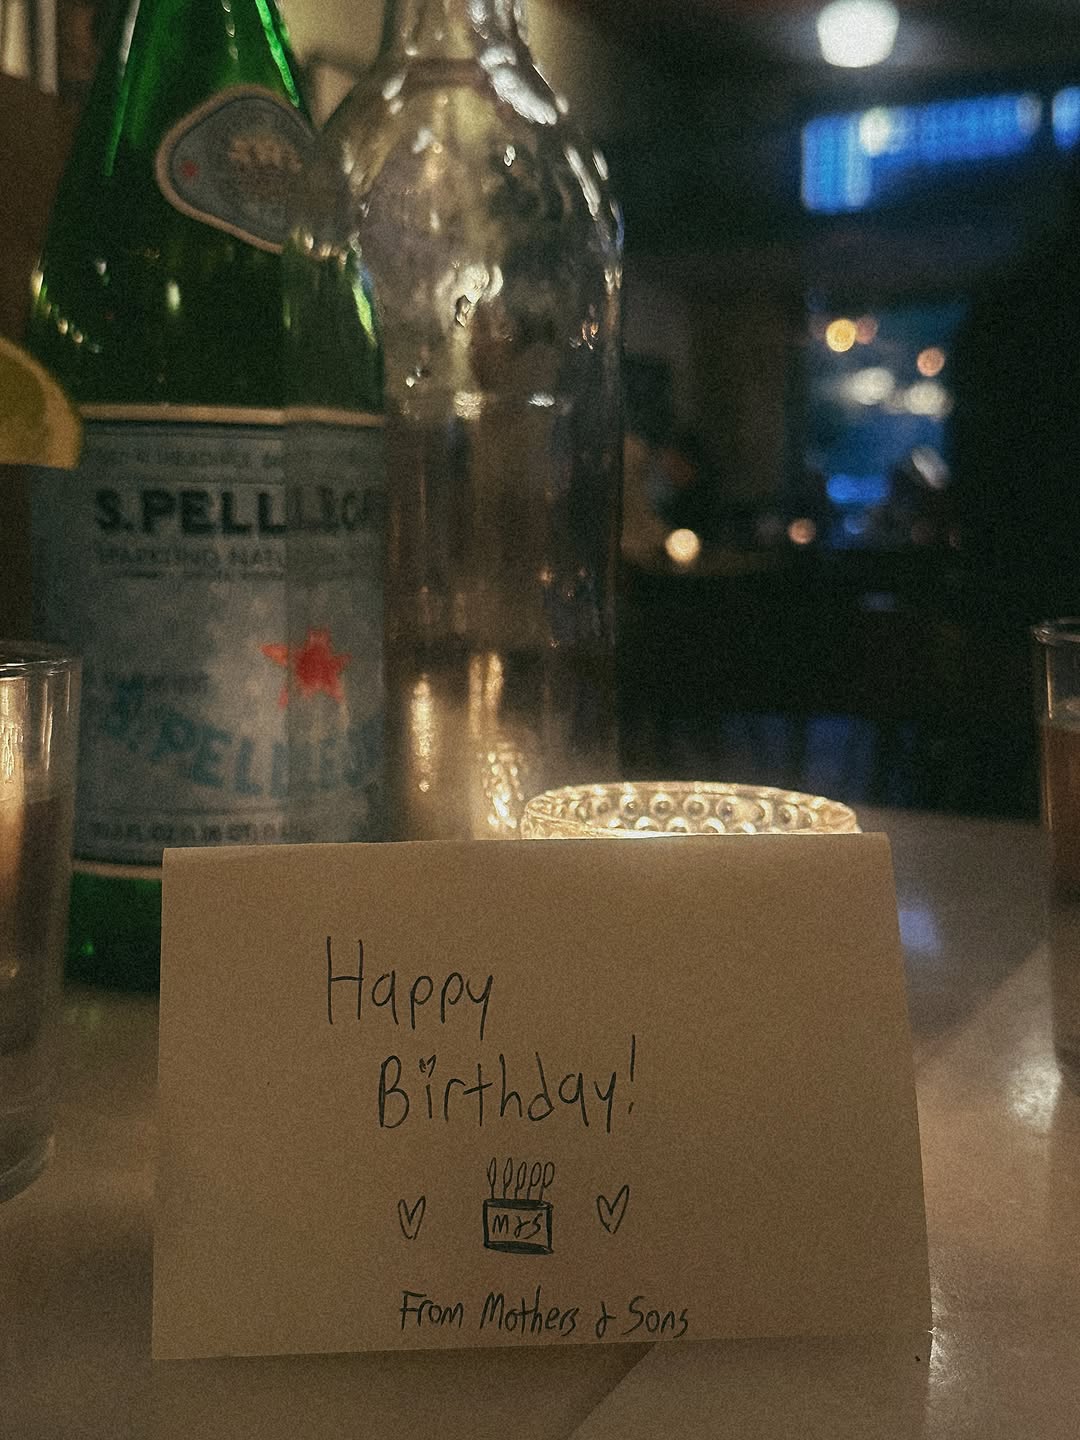 S.PELLE
SPARKLING NATU
S.PELLE
Happy
Birthday!
M&S
From Mothers & Sons